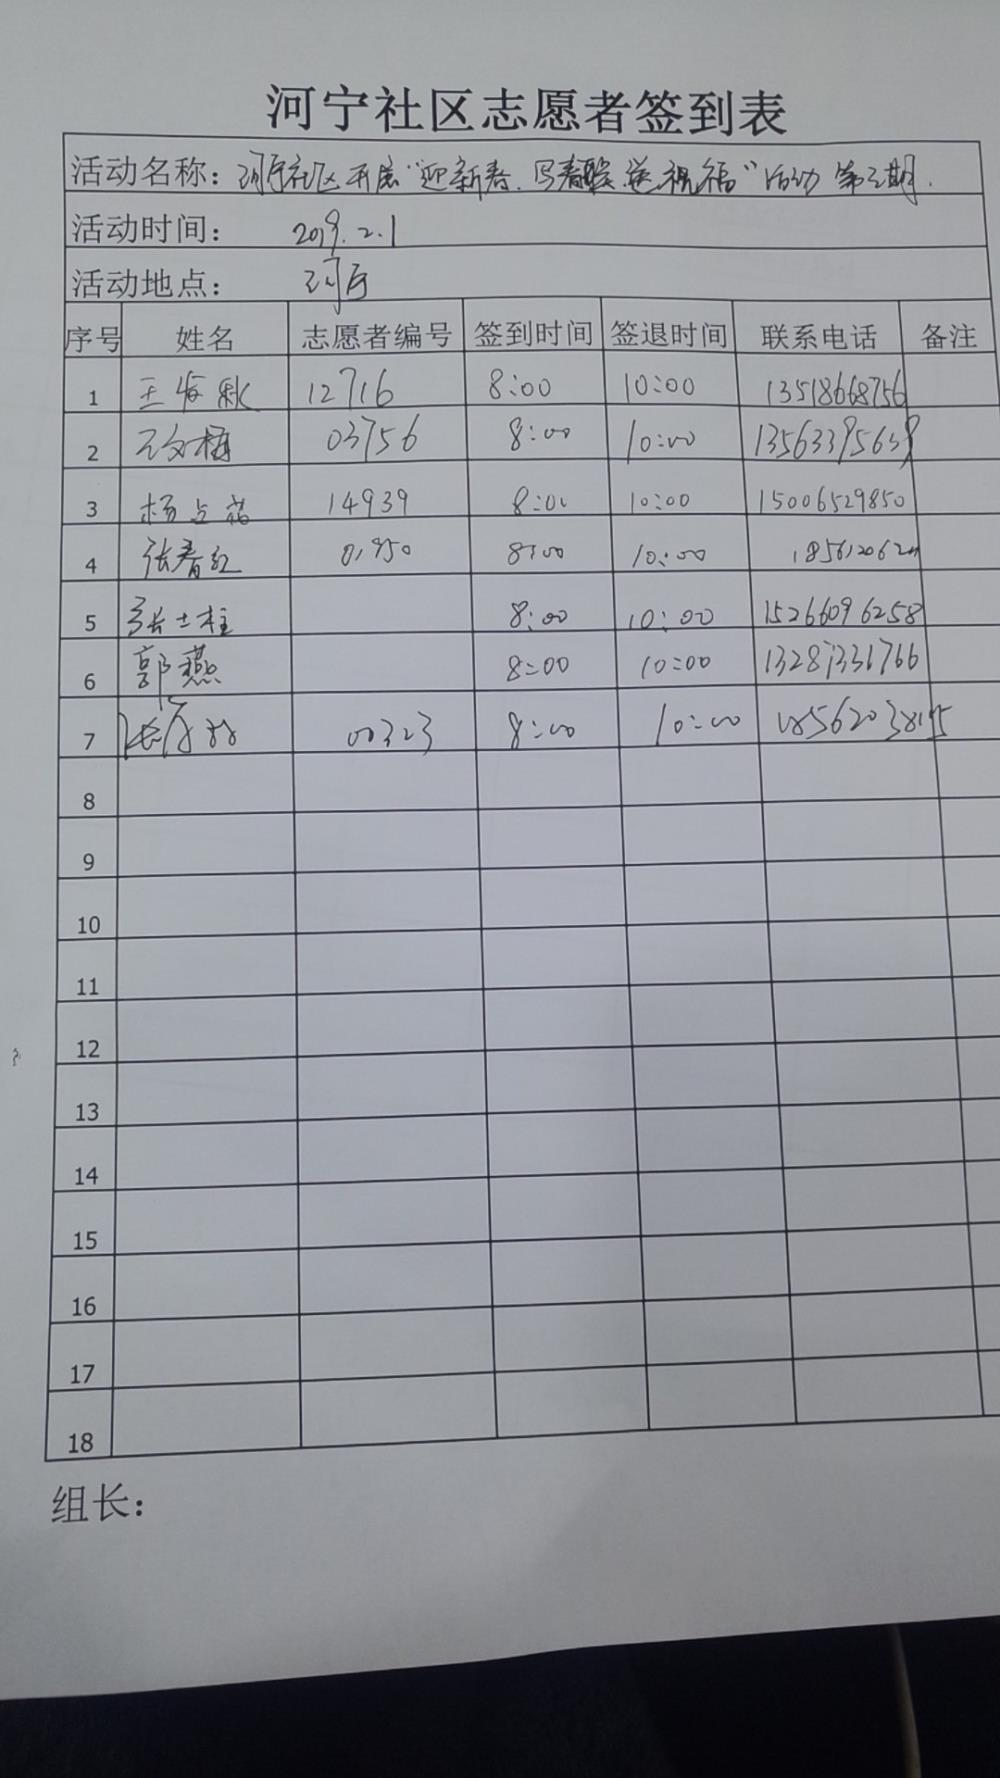 河宁社区志愿者签到表
活动名称：河宁社区开展“迎新春、写春联、送祝福”活动 第三期.
活动时间： 2019.2.1
活动地点： 河宁
序号 姓名 志愿者编号 签到时间 签退时间 联系电话 备注
1 12716 8:00 10:00 13518668756
2 03756 8:00 10:00 13563395639
3 14939 8:00 10:00 15006529850
4 张春红 8:00 10:00
5 张士柱 8:00 10:00 15266096258
6 郭燕 8:00 10:00
7 00323 8:00 10:00
8
9
10
11
12
13
14
15
16
17
18
组长：